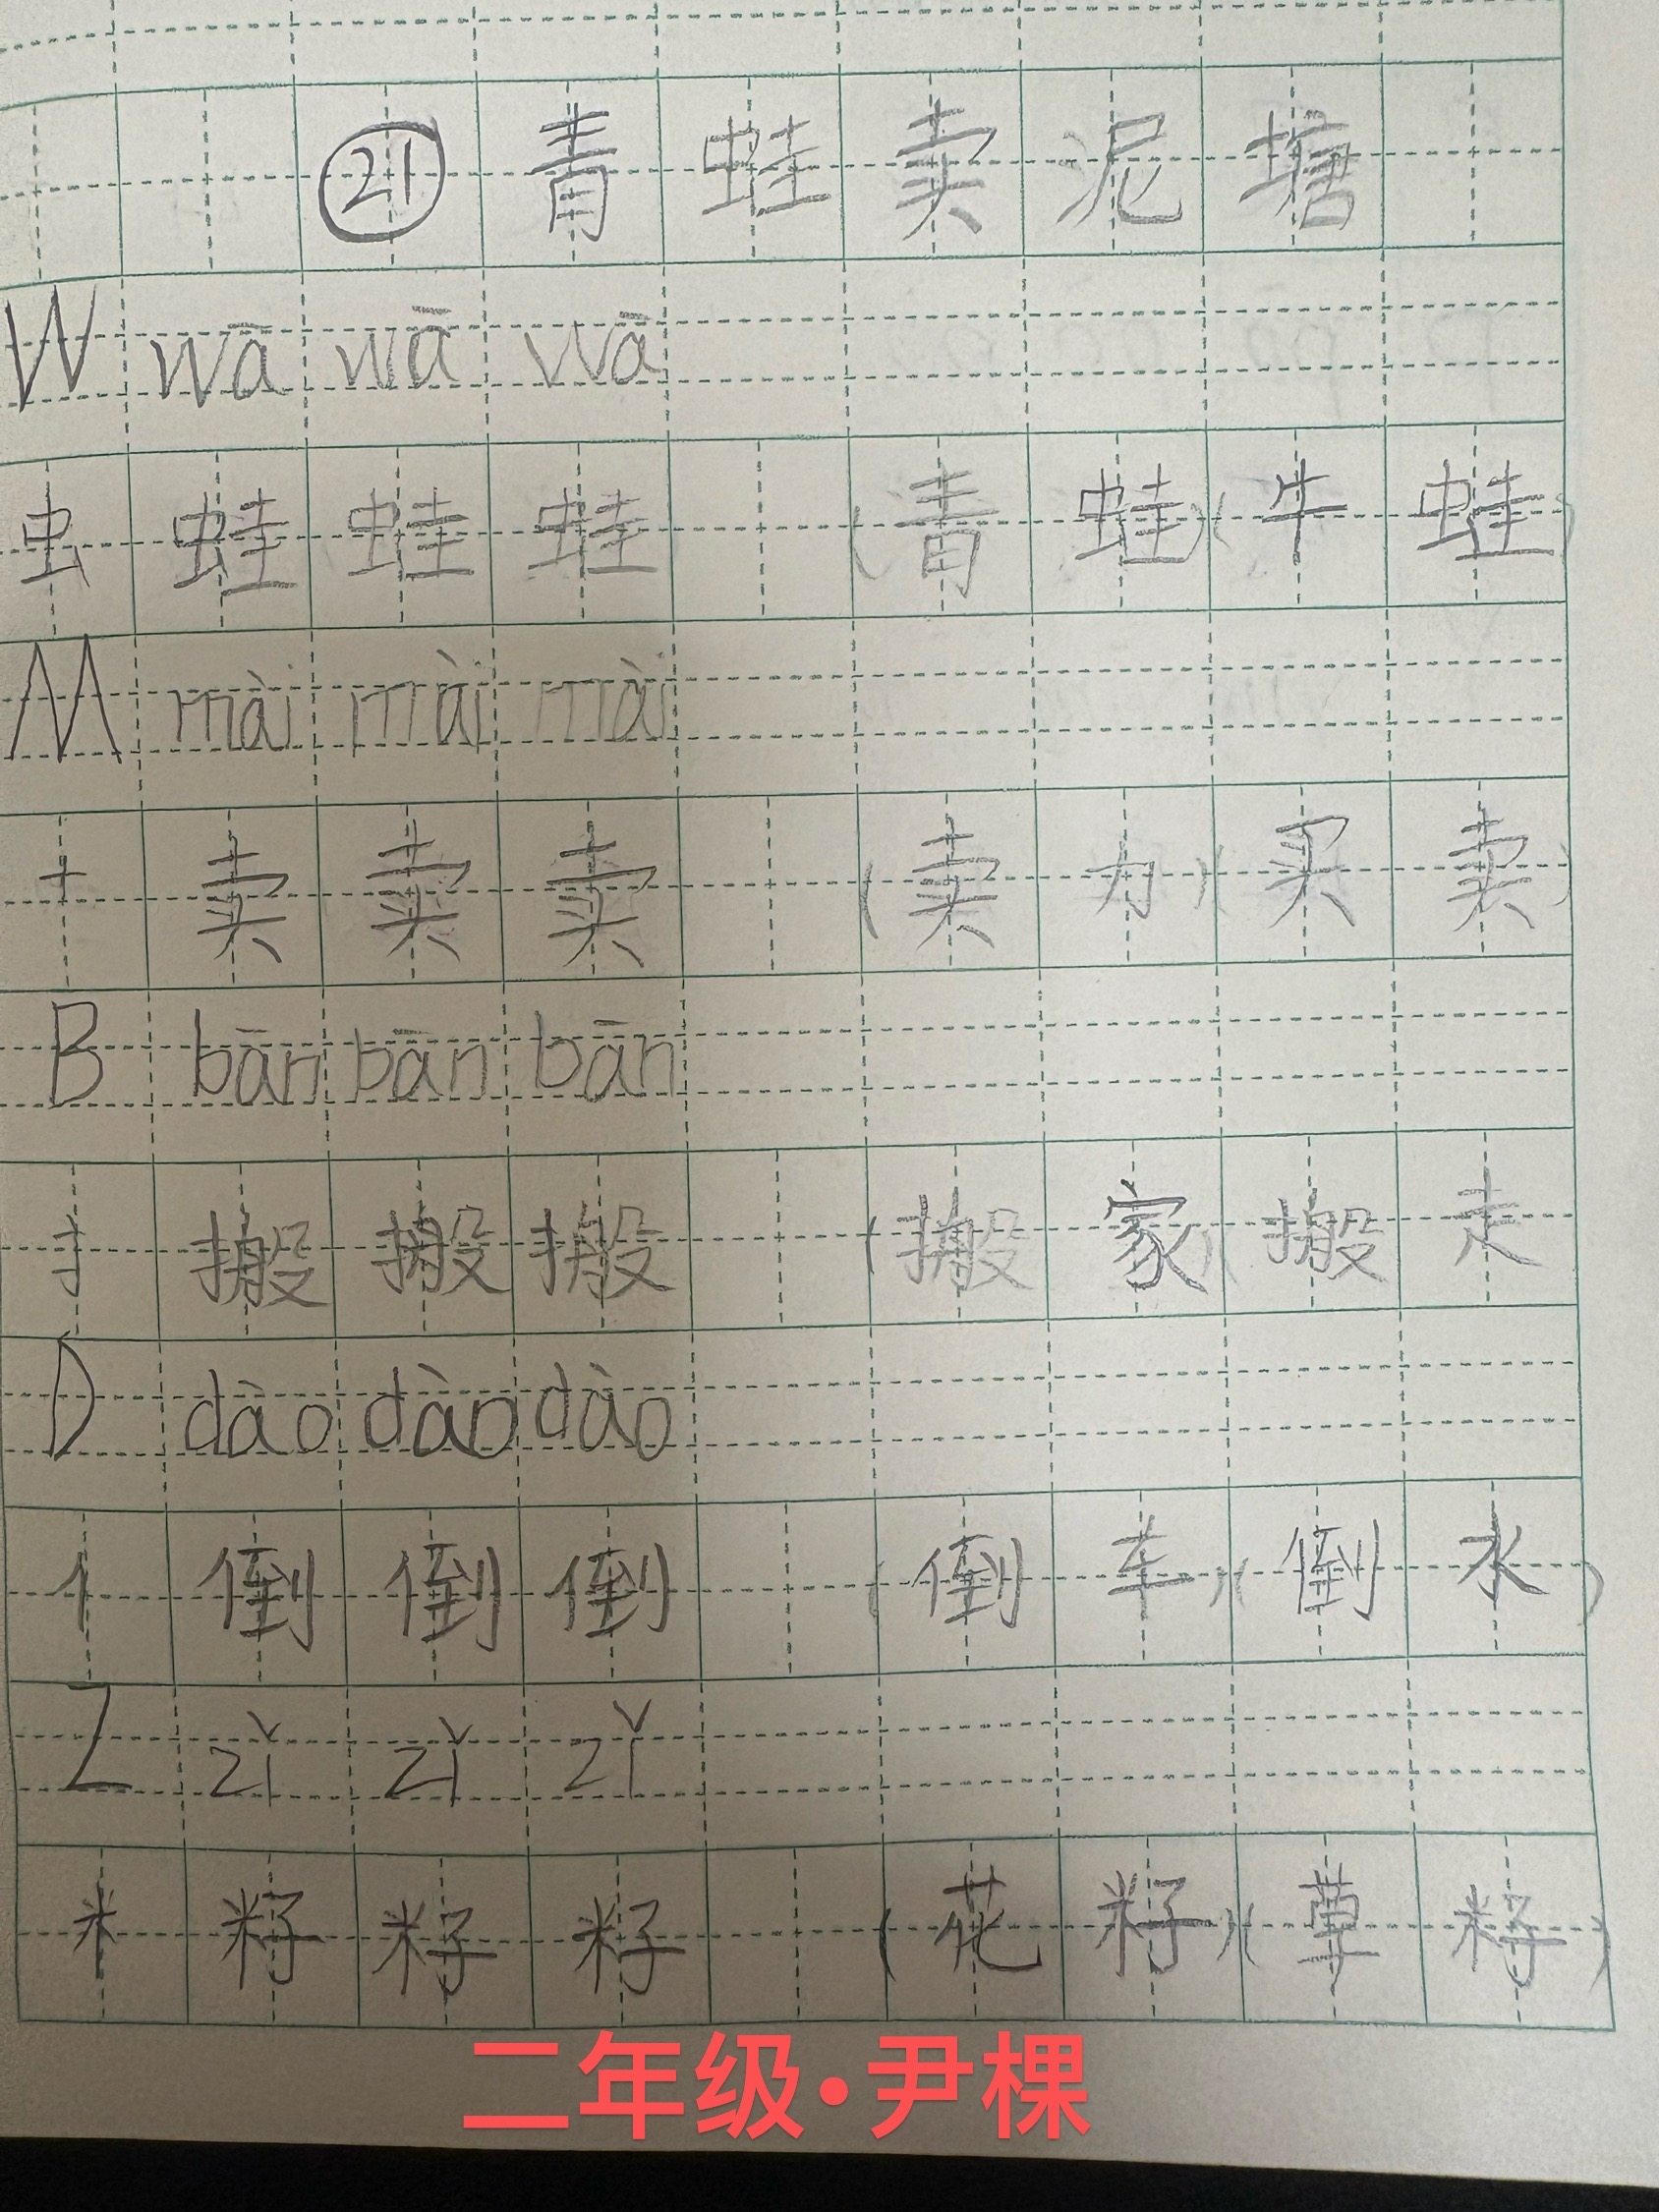 ㉑ 青蛙卖泥塘
W wā wā wā
虫 蛙 蛙 蛙 (青蛙)(牛蛙)
M mài mài mài
十 卖 卖 卖 (卖力)(买卖)
B bān bān bān
扌 搬 搬 搬 (搬家)(搬走
D dào dào dào
亻 倒 倒 倒 (倒车)(倒水)
Z zǐ zǐ zǐ
米 籽 籽 籽 (花籽)(草籽)
二年级·尹棵